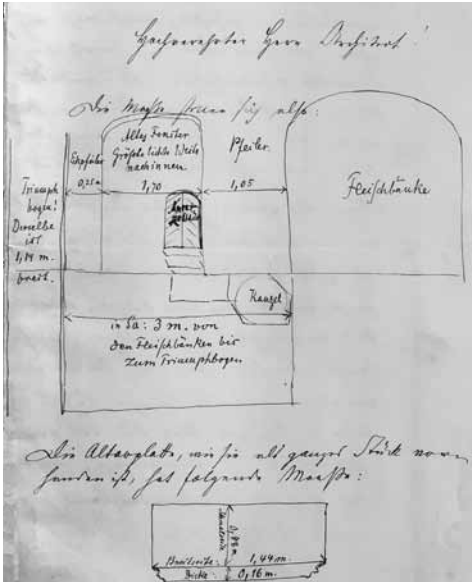 Hochverehrter Herr Architect!
Die Maaße sind also:
Altes Fenster
Größte lichte Weite
nach innen
1,70
0,25 m
Pfeiler.
1,05
Fleischbänke
Triumph
bogen!
Derselbe
ist
1,14 m.
breit.
Kanzel
in Sa: 3 m. von
den Fleischbänken bis
zum Triumphbogen
Die Altarplatte, wie sie als ganzes Stück vor
handen ist, hat folgende Maaße:
Breitseite: 1,44 m.
Dicke: 0,16 m.